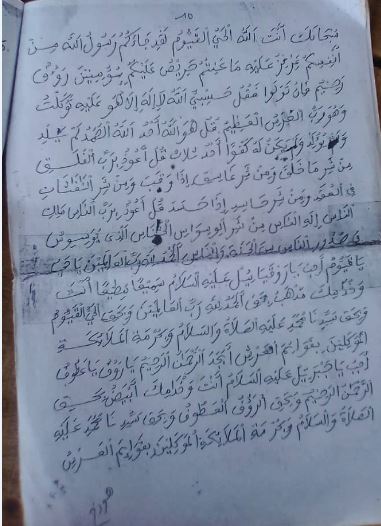 ١٥
سبحانك أنت الله الحي القيوم لقد جاءكم رسول الله من
أنفسكم عزيز عليه ما عنتم حريص عليكم بالمؤمنين رؤوف
رحيم فإن تولوا فقل حسبي الله لا إله إلا هو عليه توكلت
وهو رب العرش العظيم قل هو الله أحد الله الصمد لم يلد
ولم يولد ولم يكن له كفوا أحد ثلاث قل أعوذ برب الفلق
من شر ما خلق ومن شر غاسق إذا وقب ومن شر النفاثات
في العقد ومن شر حاسد إذا حسد قل أعوذ برب الناس ملك
الناس إله الناس من شر الوسواس الخناس الذي يوسوس
في صدور الناس من الجنة والناس الحمد لله رب العالمين يا حي
يا قيوم أجب يا روقيائيل عليه السلام سميعا مطيعا أنت
وخادمك مذهب بحق الحمد لله رب العالمين وبحق الحي القيوم
وبحق سيدنا محمد عليه الصلاة والسلام وبحرمة الملائكة
الموكلين بقوائم العرش أبجد الرحمن الرحيم يا رؤوف يا عطوف
أجب يا جبريل عليه السلام أنت وخادمك الأبيض بحق
الرحمن الرحيم وبحق الرؤوف العطوف وبحق سيدنا محمد عليه
الصلاة والسلام وبحرمة الملائكة الموكلين بقوائم العرش
هوز